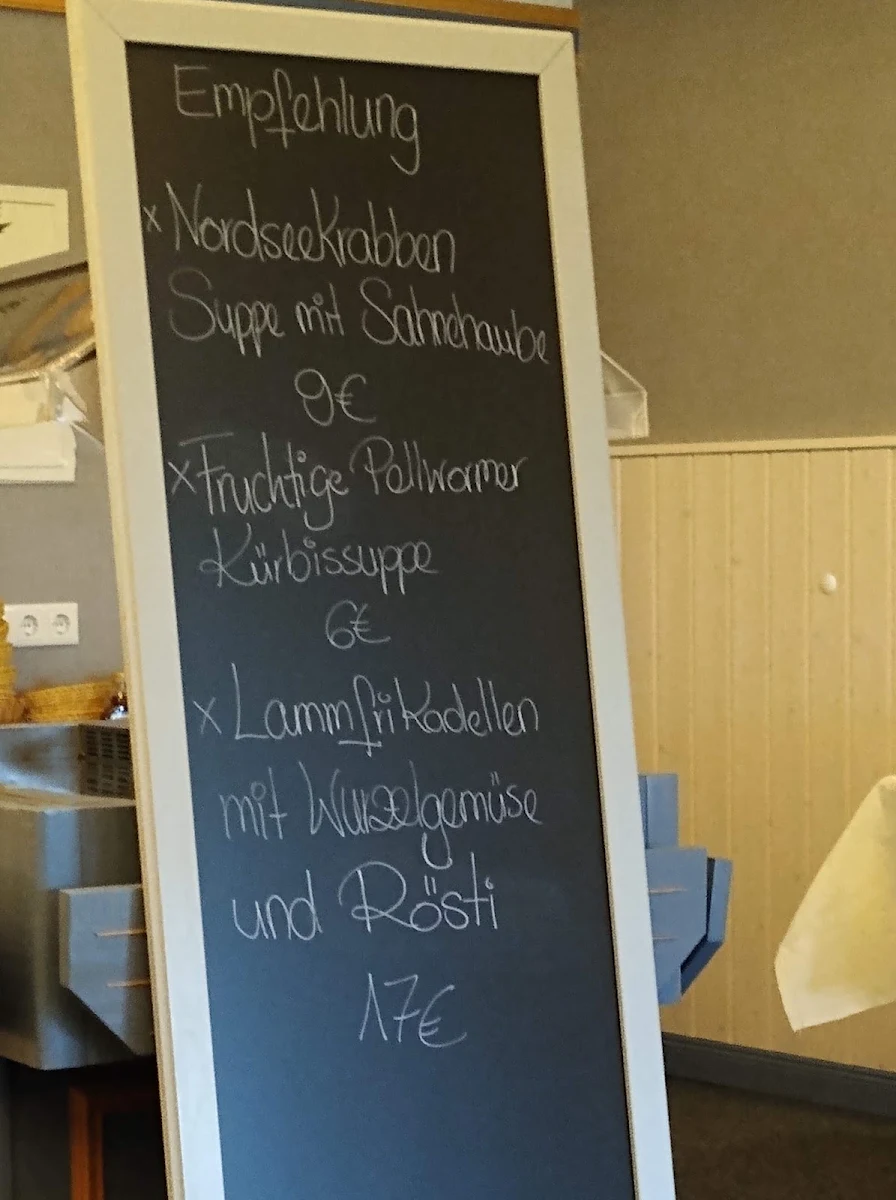 Empfehlung
x Nordseekrabben
Suppe mit Sahnehaube
9€
x Fruchtige Pellwormer
Kürbissuppe
6€
x Lammfrikadellen
mit Wurzelgemüse
und Rösti
17€